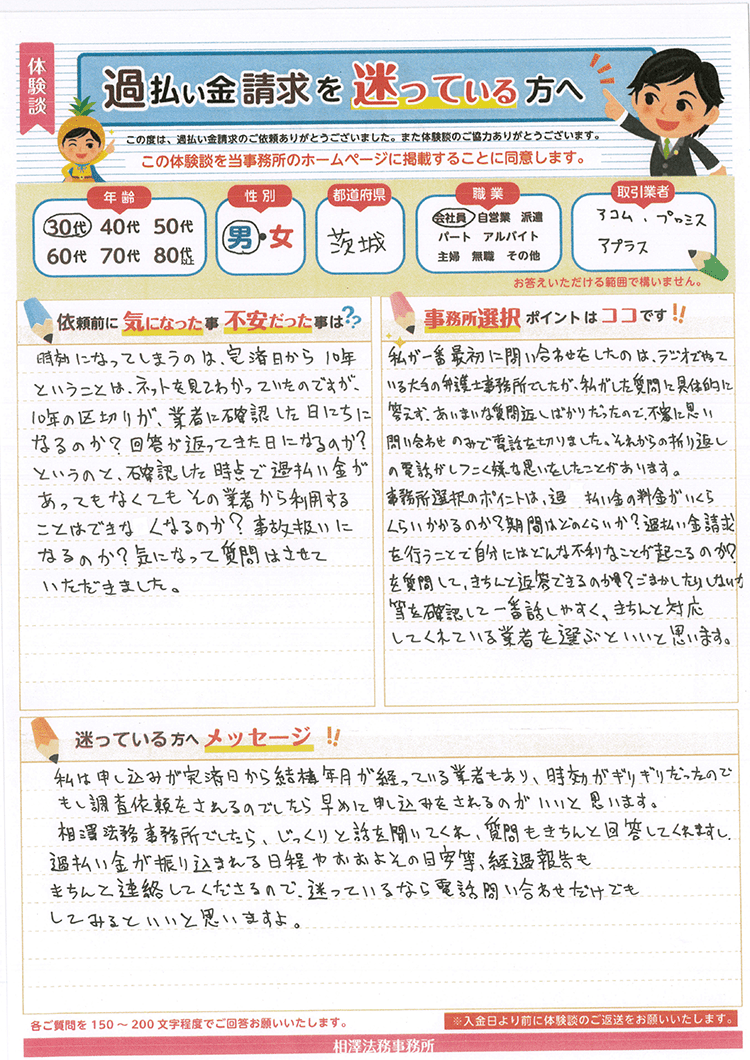 体験談
過払い金請求を迷っている方へ
この度は、過払い金請求のご依頼ありがとうございました。また体験談のご協力ありがとうございます。
この体験談を当事務所のホームページに掲載することに同意します。
年齢
30代 40代 50代
60代 70代 80代以上
性別
男・女
都道府県
茨城
職業
会社員 自営業 派遣
パート アルバイト
主婦 無職 その他
取引業者
アコム、プロミス
アプラス
お答えいただける範囲で構いません。
依頼前に気になった事 不安だった事は??
時効になってしまうのは、完済日から10年
ということは、ネットを見てわかっていたのですが、
10年の区切りが、業者に確認した日にちに
なるのか?回答が返ってきた日になるのか?
というのと、確認した時点で過払い金が
あってもなくてもその業者から利用する
ことはできな くなるのか?事故扱いに
なるのか?気になって質問はさせて
いただきました。
事務所選択ポイントはココです!!
私が一番最初に問い合わせをしたのは、ラジオでやって
いる大手の弁護士事務所でしたが、私がした質問に具体的に
答えず、あいまいな質問返しばかりだったので、不審に思い
問い合わせのみで電話を切りました。それからの折り返し
の電話がしつこく嫌な思いをしたことがあります。
事務所選択のポイントは、過 払い金の料金がいくら
くらいかかるのか?期間はどのくらいか?過払い金請求
を行うことで自分にはどんな不利なことが起こるのか?
を質問して、きちんと返答できるのか?ごまかしたりしないか
等を確認して一番話しやすく、きちんと対応
してくれている業者を選ぶといいと思います。
迷っている方へメッセージ!!
私は申し込みが完済日から結構年月が経っている業者もあり、時効がギリギリだったので
もし調査依頼をされるのでしたら早めに申し込みをされるのがいいと思います。
相澤法務事務所でしたら、じっくりと話を聞いてくれ、質問もきちんと回答してくれますし、
過払い金が振り込まれる日程やおおよその目安等、経過報告も
きちんと連絡してくださるので、迷っているなら電話問い合わせだけでも
してみるといいと思いますよ。
各ご質問を150〜200文字程度でご回答お願いいたします。
※入金日より前に体験談のご返送をお願いいたします。
相澤法務事務所